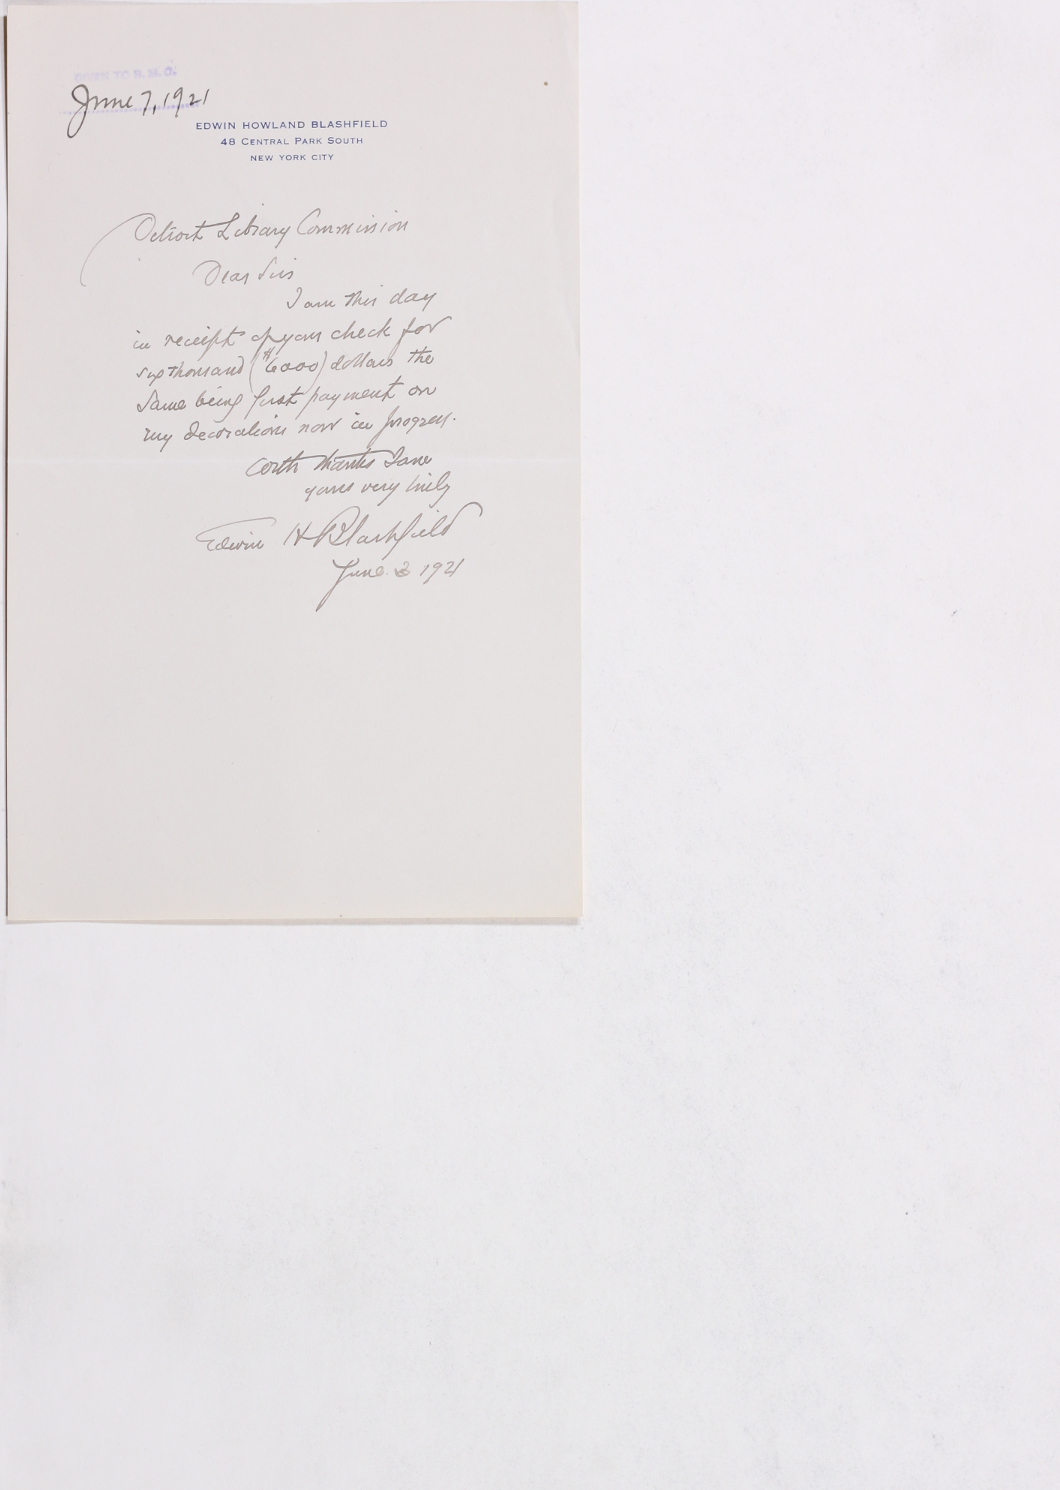 GIVEN TO B. M. O.
June 7, 1921
EDWIN HOWLAND BLASHFIELD
48 CENTRAL PARK SOUTH
NEW YORK CITY
Detroit Library Commission
Dear Sirs
I am this day
in receipt of your check for
six thousand ($6000) dollars the
same being first payment on
my decorations now in progress.
With thanks I am
yours very truly
Edwin H Blashfield
June 3 1921